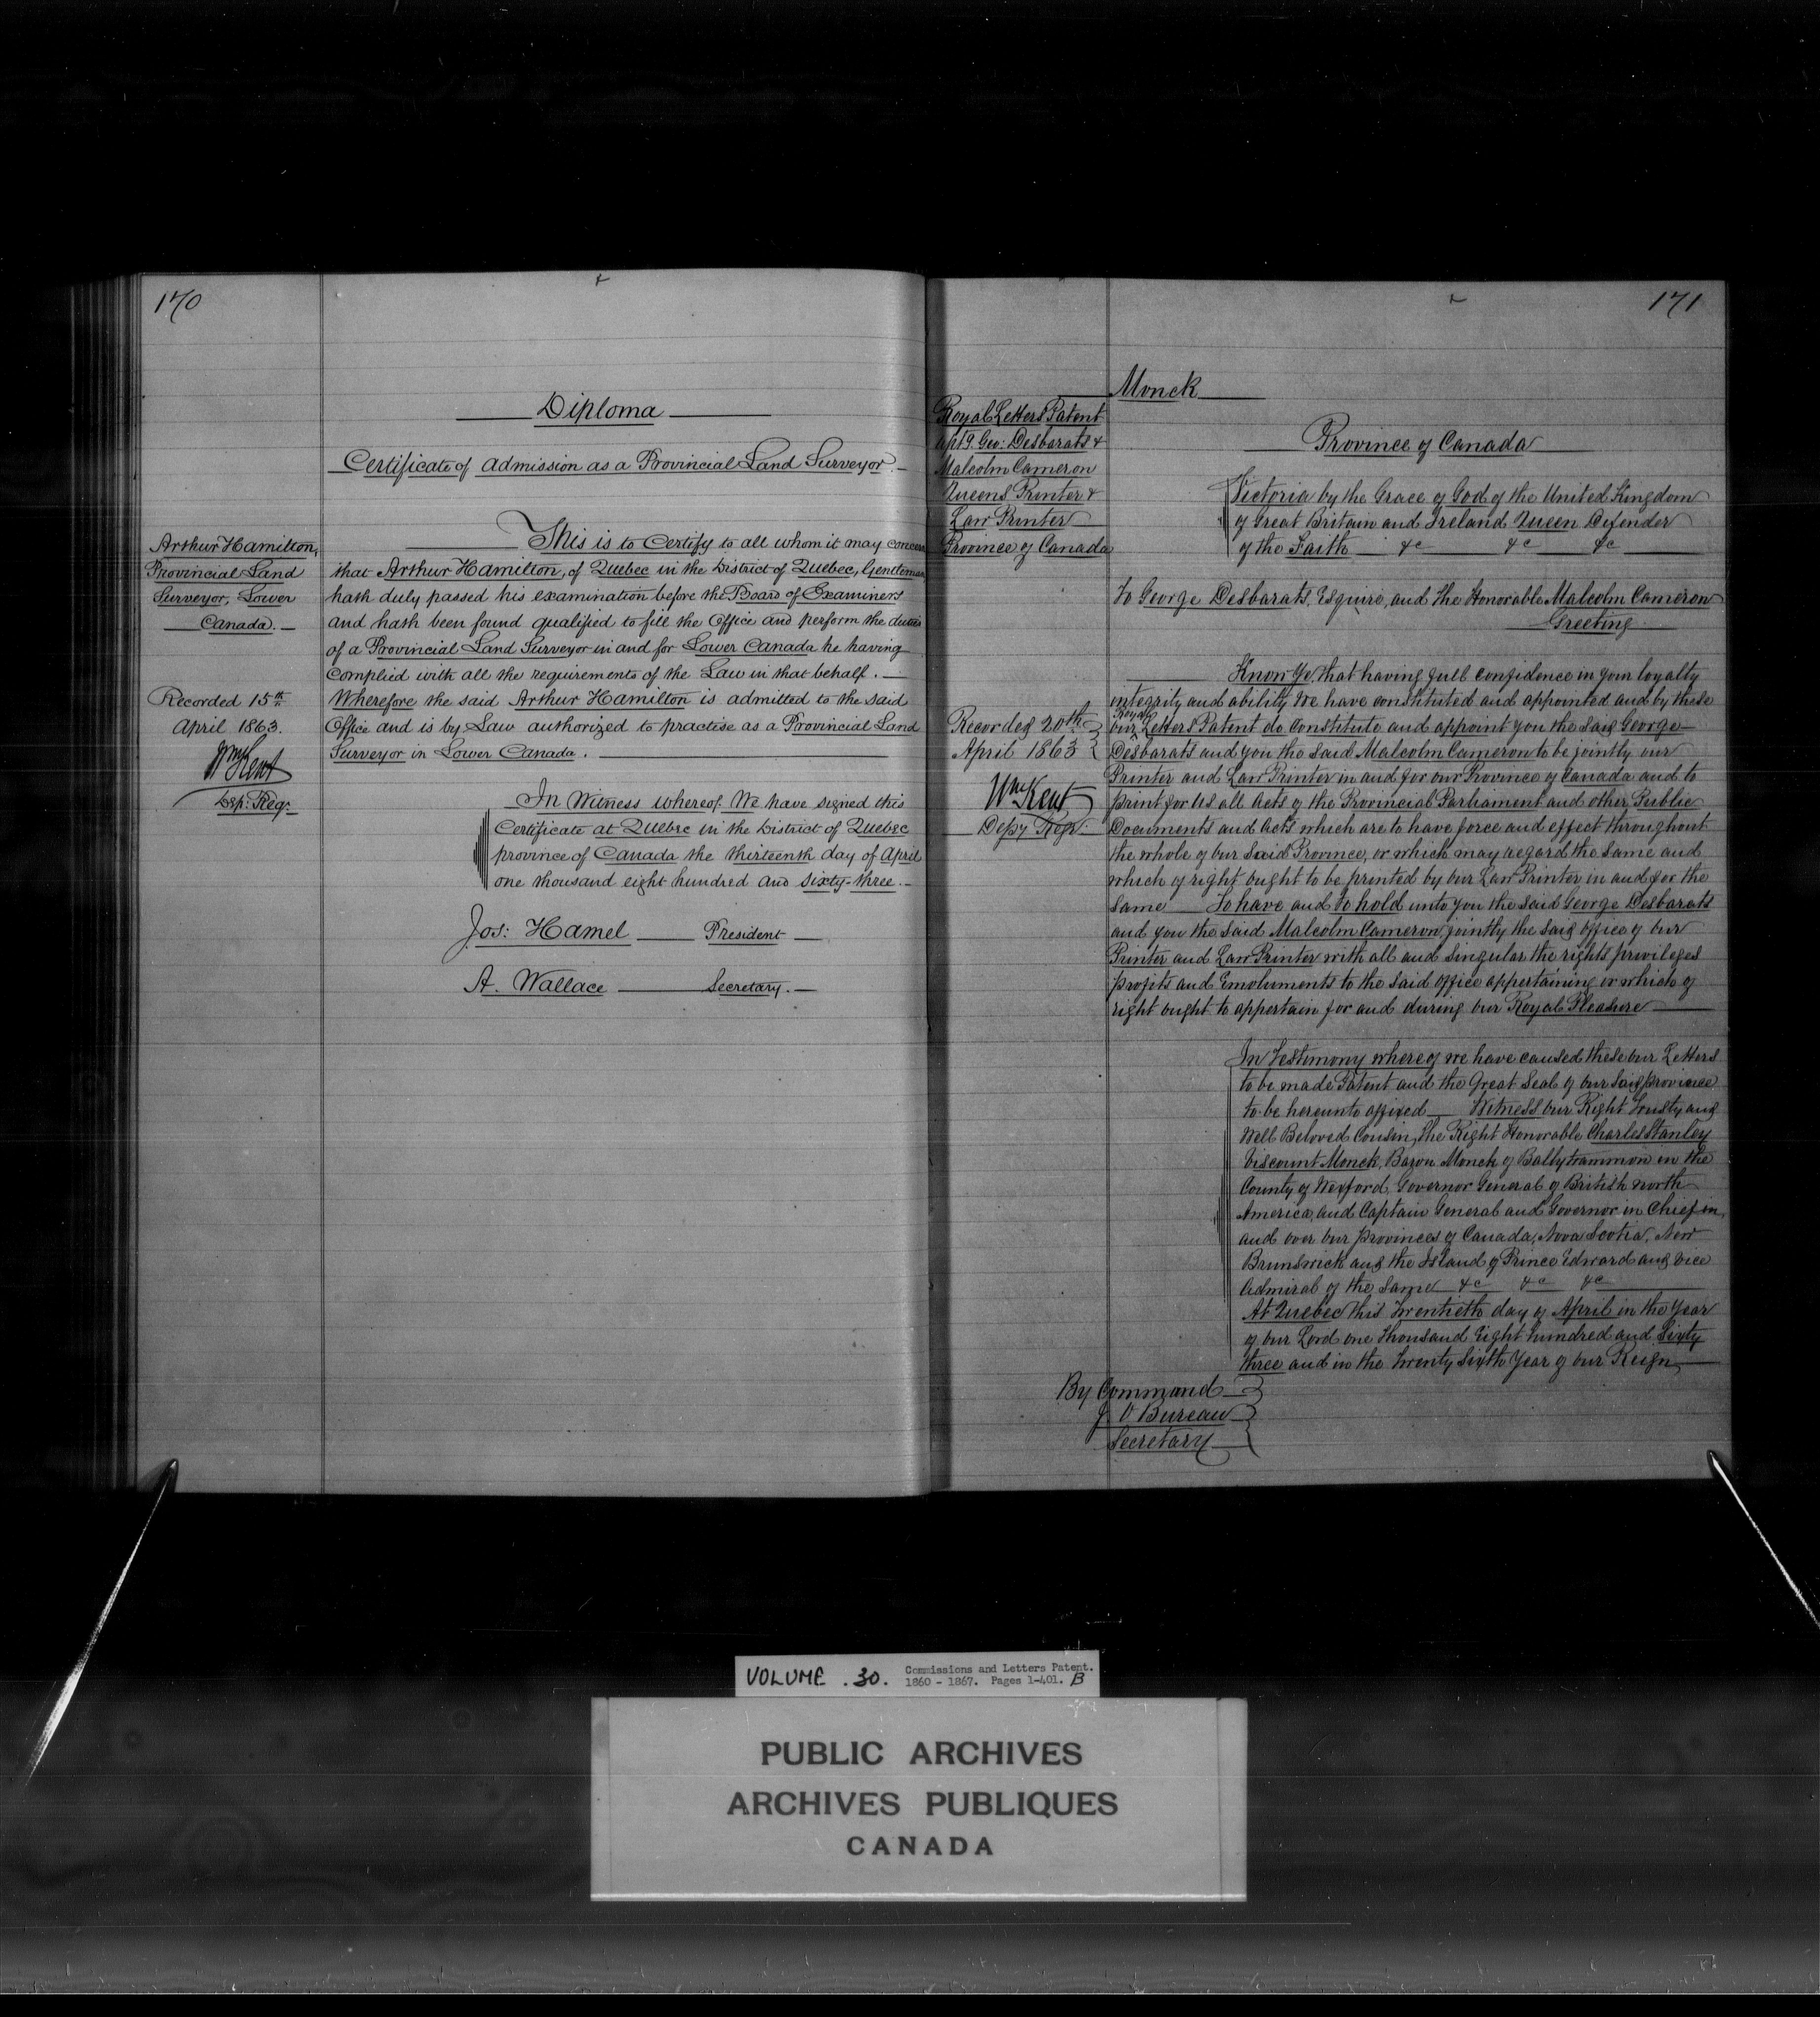 170
Diploma
Certificate of Admission as a Provincial Land Surveyor.
Arthur Hamilton,
Provincial Land
Surveyor, Lower
Canada.
Recorded 15th
April 1863.
Wm Kent
Dep: Reg:
This is to Certify to all whom it may concern
that Arthur Hamilton, of Quebec in the District of Quebec, Gentleman
hath duly passed his examination before the Board of Examiners
and hath been found qualified to fill the Office and perform the duties
of a Provincial Land Surveyor in and for Lower Canada he having
complied with all the requirements of the Law in that behalf.
Wherefore the said Arthur Hamilton is admitted to the said
Office and is by Law authorized to practise as a Provincial Land
Surveyor in Lower Canada.
In Witness whereof We have signed this
Certificate at Quebec in the District of Quebec
province of Canada the thirteenth day of April
one thousand eight hundred and sixty-three.
Jos: Hamel President
A. Wallace Secretary.
171
Monck
Royal Letters Patent
apt9 Geo: Desbarats &
Malcolm Cameron
Queens Printer &
Law Printer
Province of Canada
Recorded 20th
April 1863
Wm Kent
Depy Regr.
Province of Canada
Victoria by the Grace of God of the United Kingdom
of Great Britain and Ireland Queen Defender
of the Faith &c &c &c
To George Desbarats, Esquire, and the Honorable Malcolm Cameron
Greeting
Know Ye, that having full confidence in your loyalty
integrity and ability We have constituted and appointed and by these
our Royal Letters Patent do constitute and appoint you the said George
Desbarats and you the said Malcolm Cameron to be jointly our
Printer and Law Printer in and for our Province of Canada and to
print for us all Acts of the Provincial Parliament and other Public
Documents and Acts which are to have force and effect throughout
the whole of our said Province, or which may regard the same and
which of right ought to be printed by our Law Printer in and for the
same To have and to hold unto you the said George Desbarats
and you the said Malcolm Cameron, jointly the said office of our
Printer and Law Printer with all and singular the rights privileges
profits and Emoluments to the said office appertaining or which of
right ought to appertain for and during our Royal Pleasure
In Testimony whereof we have caused these our Letters
to be made Patent and the Great Seal of our said province
to be hereunto affixed Witness our Right Trusty and
Well Beloved Cousin, the Right Honorable Charles Stanley
Viscount Monck, Baron Monck of Ballytrammon in the
County of Wexford, Governor General of British North
America, and Captain General and Governor in Chief in
and over our provinces of Canada, Nova Scotia, New
Brunswick and the Island of Prince Edward and Vice
Admiral of the same &c &c &c
At Quebec this Twentieth day of April in the Year
of our Lord one thousand Eight hundred and Sixty
three and in the Twenty Sixth Year of our Reign
By Command
J O Bureau
Secretary
VOLUME . 30. Commissions and Letters Patent.
1860 - 1867. Pages 1-401. B
PUBLIC ARCHIVES
ARCHIVES PUBLIQUES
CANADA